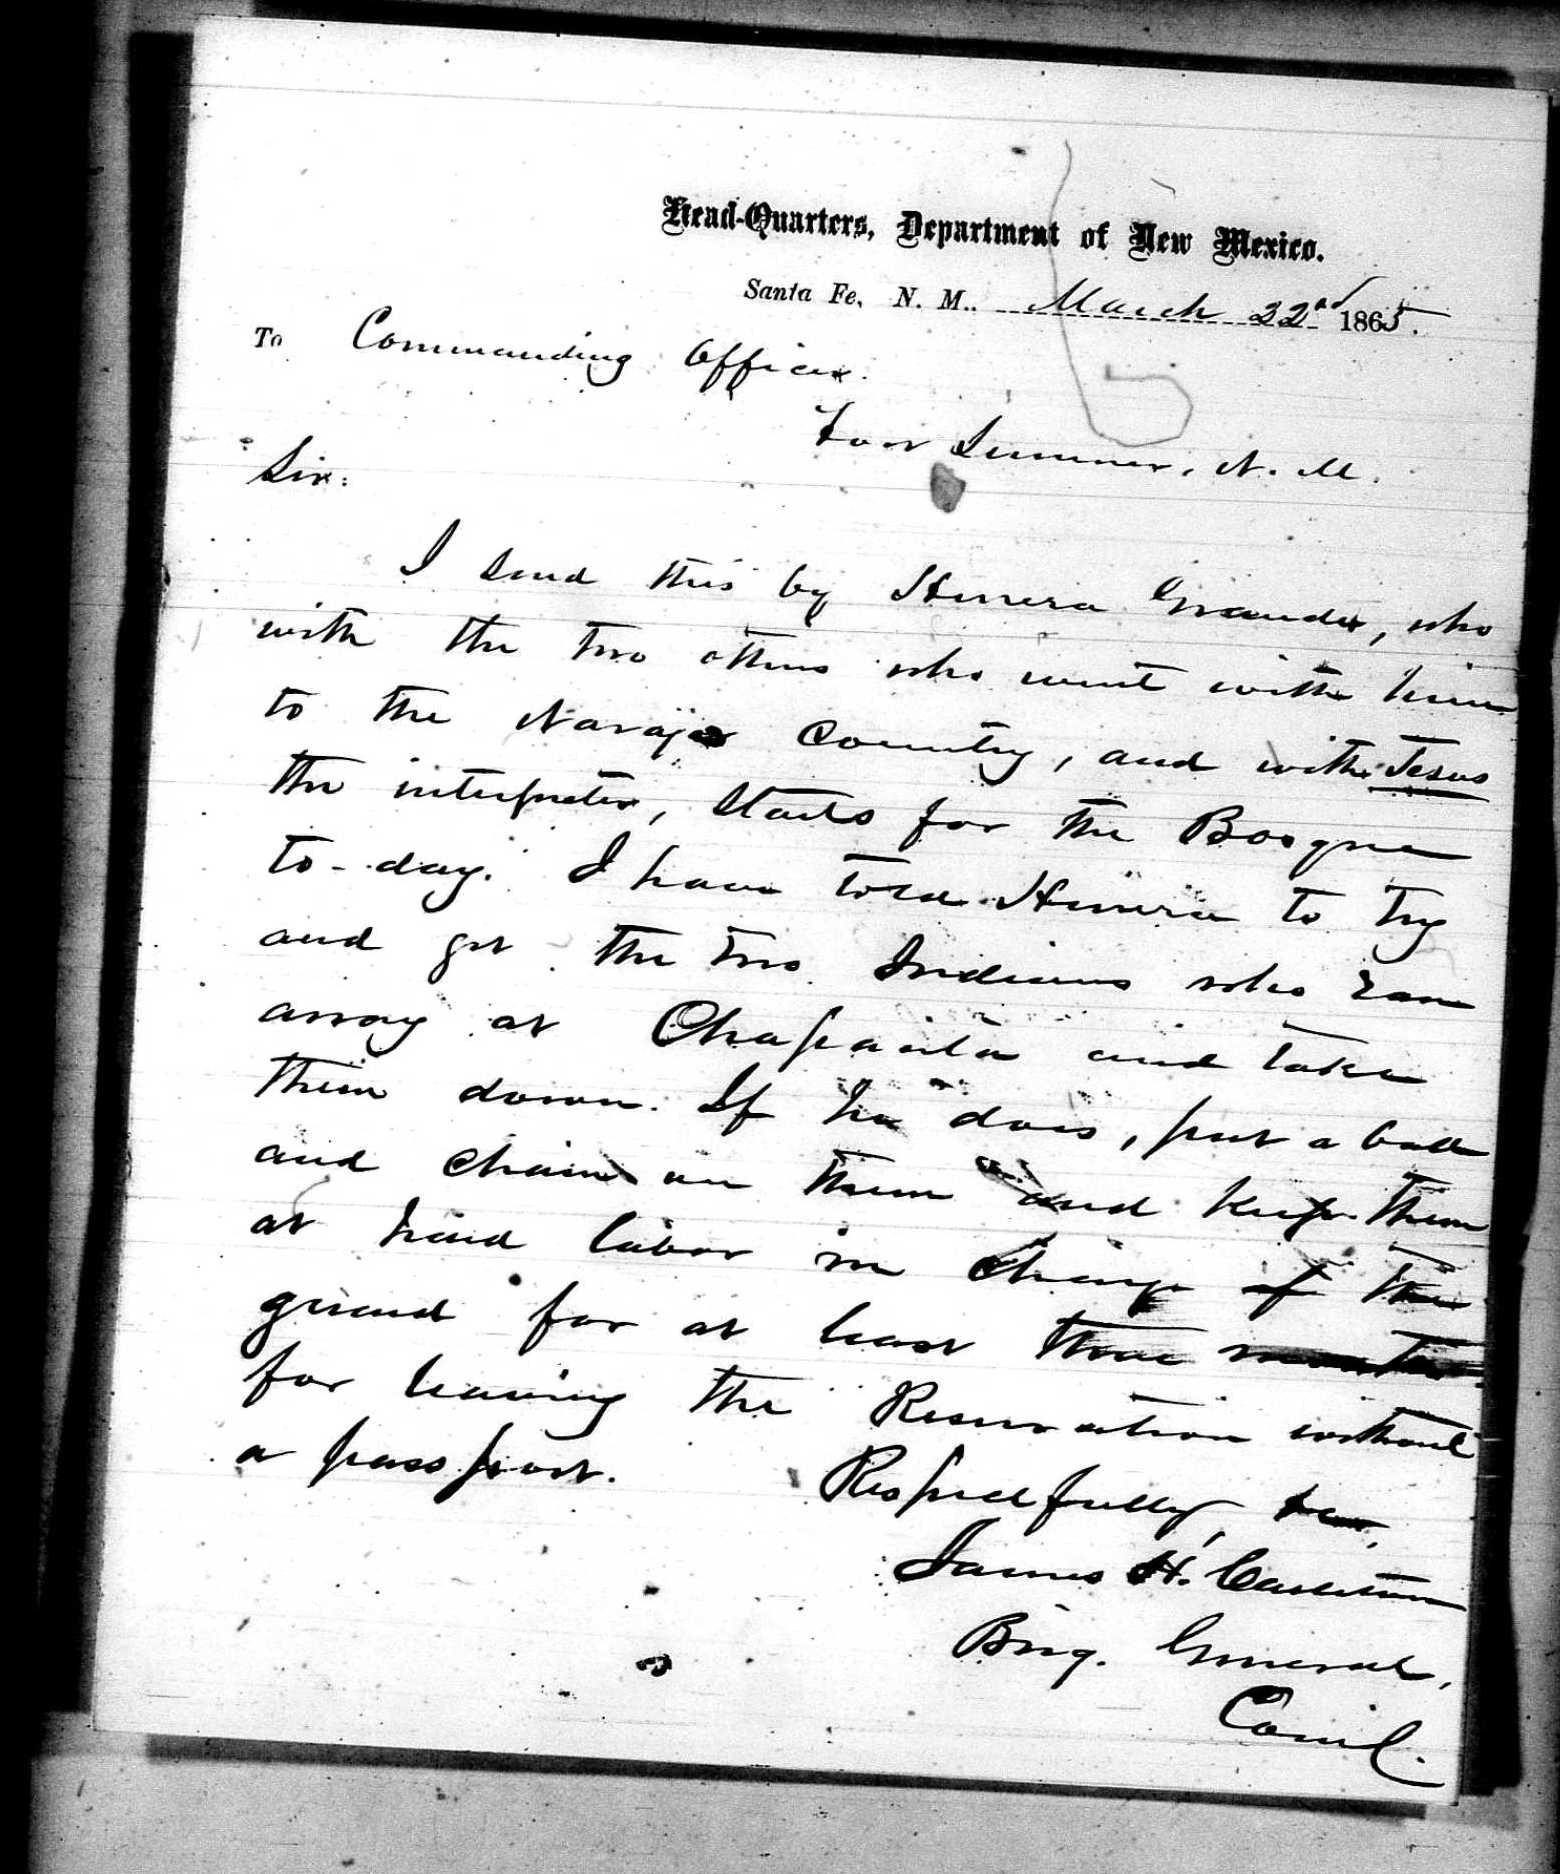 Head-Quarters, Department of New Mexico.
Santa Fe, N. M., March 22nd 1865.
To Commanding Officer.
Fort Sumner, N. M.
Sir:
I send this by Herrera Grande, who
with the two others who went with him
to the Navajo Country, and with Jesus
the interpreter, starts for the Bosque
to-day. I have told Herrera to try
and get the two Indians who ran
away at Chaparita and take
them down. If he does, put a ball
and chain on them and keep them
at hard labor in charge of the
guard for at least three months
for leaving the Reservation without
a passport.
Respectfully,
James H. Carleton
Brig. General,
Com'd.